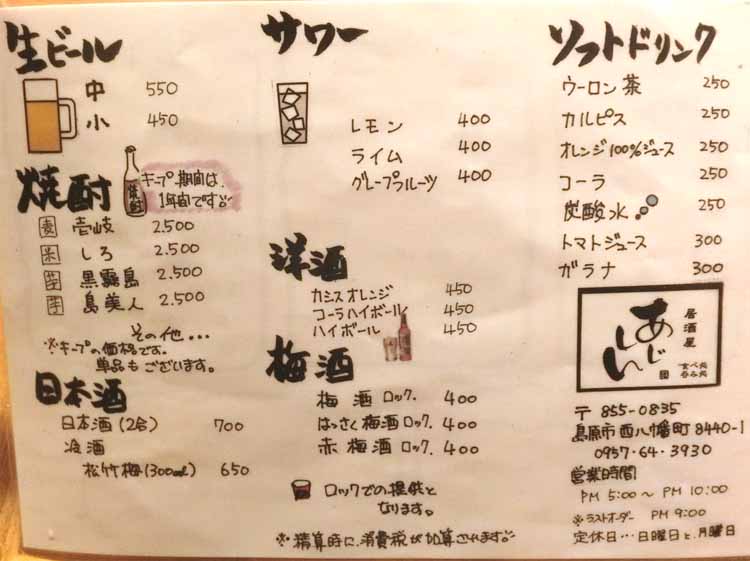 生ビール
中 550
小 450
焼酎
焼酎
キープ期間は、
1年間です
麦 壱岐 2.500
米 しろ 2.500
芋 黒霧島 2.500
芋 島美人 2.500
その他...
※キープの価格です。
単品もございます。
日本酒
日本酒(2合) 700
冷酒
松竹梅(300ml) 650
サワー
レモン 400
ライム 400
グレープフルーツ 400
洋酒
カシスオレンジ 450
コーラハイボール 450
ハイボール 450
梅酒
梅酒ロック. 400
はっさく梅酒ロック. 400
赤梅酒ロック. 400
ロックでの提供と
なります。
※精算時に、消費税が加算されます
ソフトドリンク
ウーロン茶 250
カルピス 250
オレンジ100%ジュース 250
コーラ 250
炭酸水 250
トマトジュース 300
ガラナ 300
居酒屋
あじしん
食べ処
呑み処
〒855-0835
島原市西八幡町8440-1
0957-64-3930
営業時間
PM 5:00〜PM 10:00
※ラストオーダー PM 9:00
定休日…日曜日と、月曜日